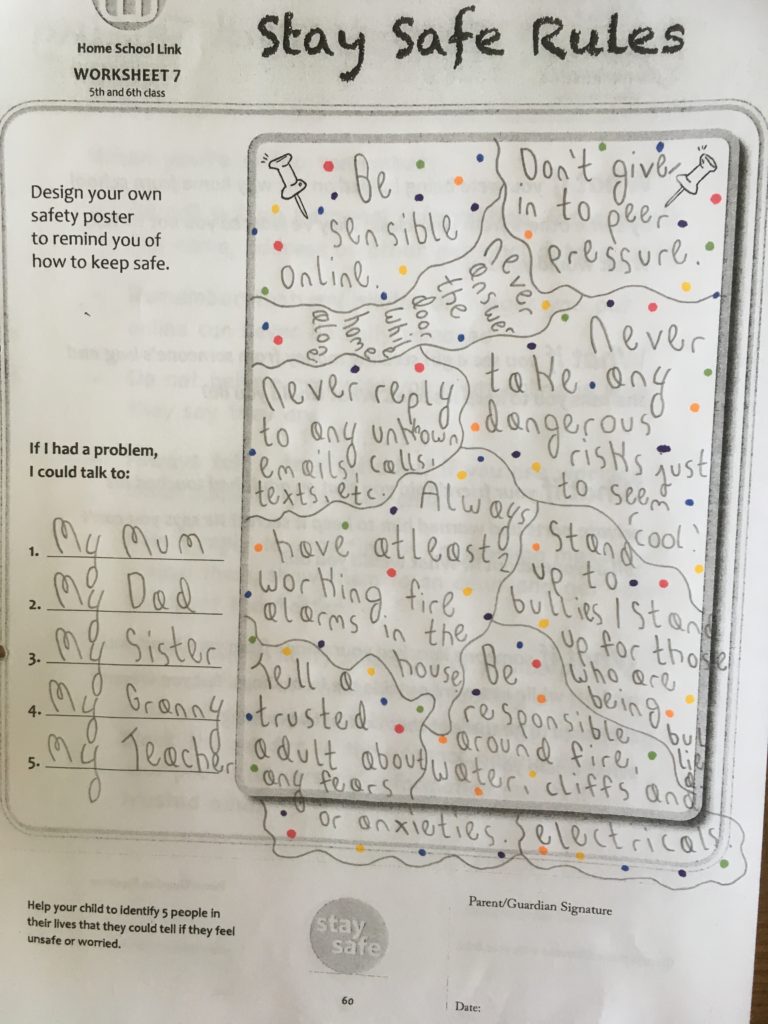 Stay Safe Rules
Home School Link
WORKSHEET 7
5th and 6th class
Design your own
safety poster
to remind you of
how to keep safe.
If I had a problem,
I could talk to:
1. My Mum
2. My Dad
3. My Sister
4. My Granny
5. My Teacher
Be
sensible
online.
Don't give
in to peer
pressure.
never
answer
the
door
while
home
alone
Never
take any
dangerous
risks just
to seem
'cool'.
Never reply
to any unknown
emails, calls,
texts, etc.
Always
have atleast 2
working fire
alarms in the
house
Stand
up to
bullies / Stand
up for those
who are
being
bullied
Tell a
trusted
adult about
any fears
or anxieties.
Be
responsible
around fire,
water, cliffs and
electricals.
Help your child to identify 5 people in
their lives that they could tell if they feel
unsafe or worried.
stay
safe
60
Parent/Guardian Signature
Date: